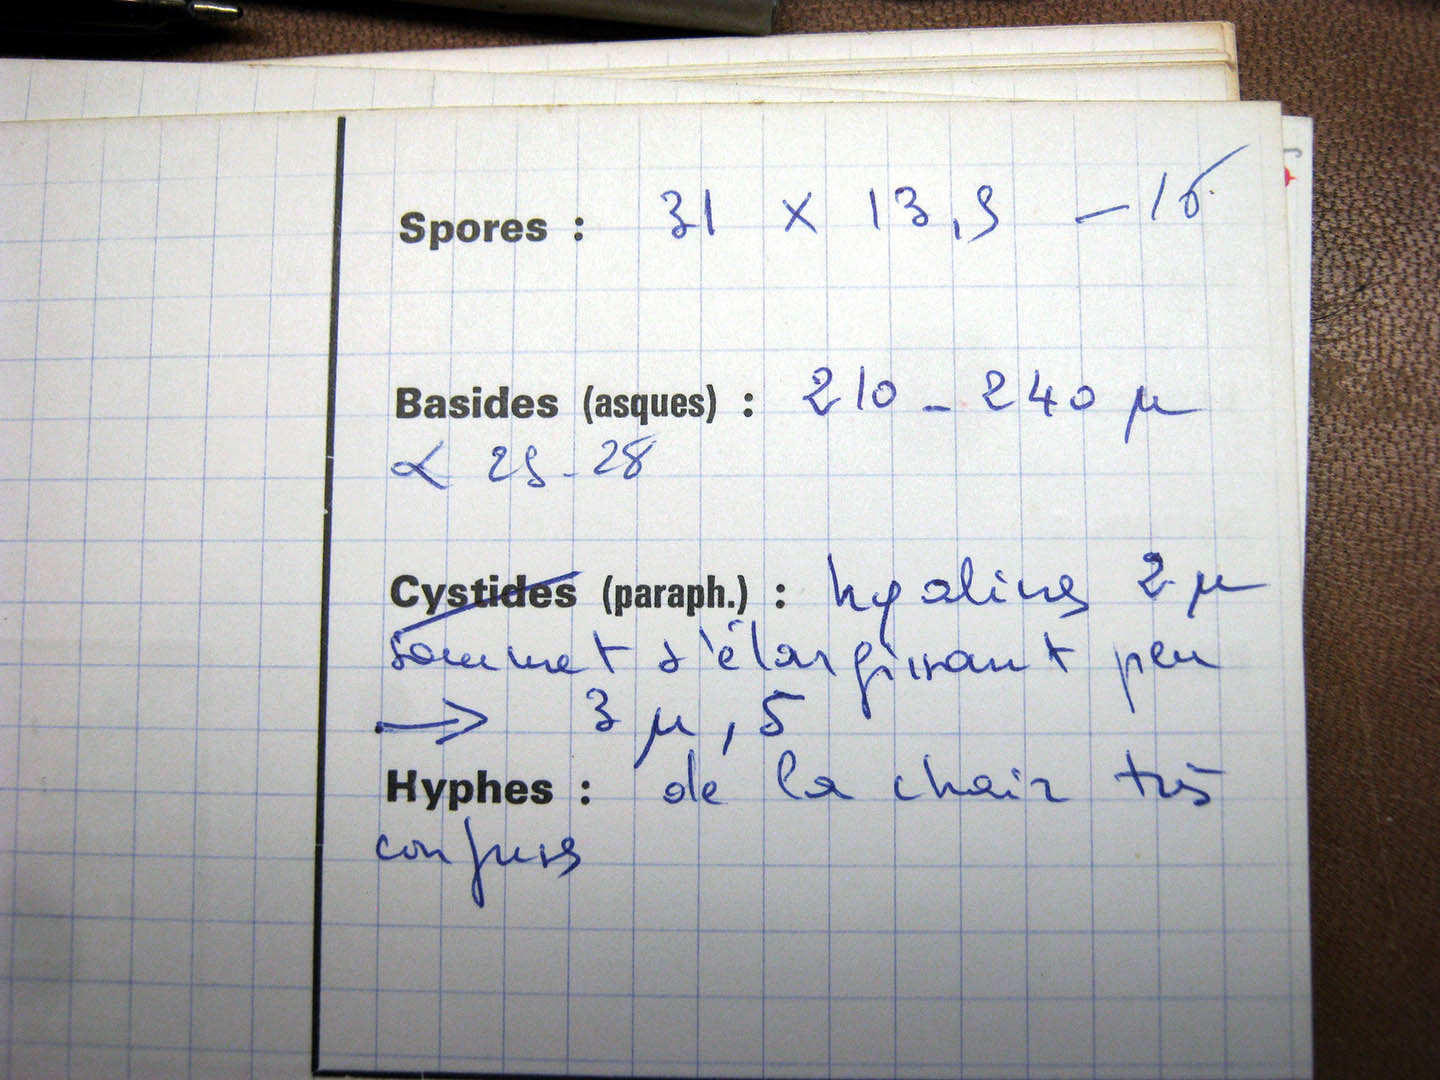 Spores : 31 x 13,5 – 16
Basides (asques) : 210 - 240 µ
x 25-28
Cystides (paraph.) : hyalines 2 µ
sommet s'élargissant peu
→ 3 µ, 5
Hyphes : de la chair très
confuses